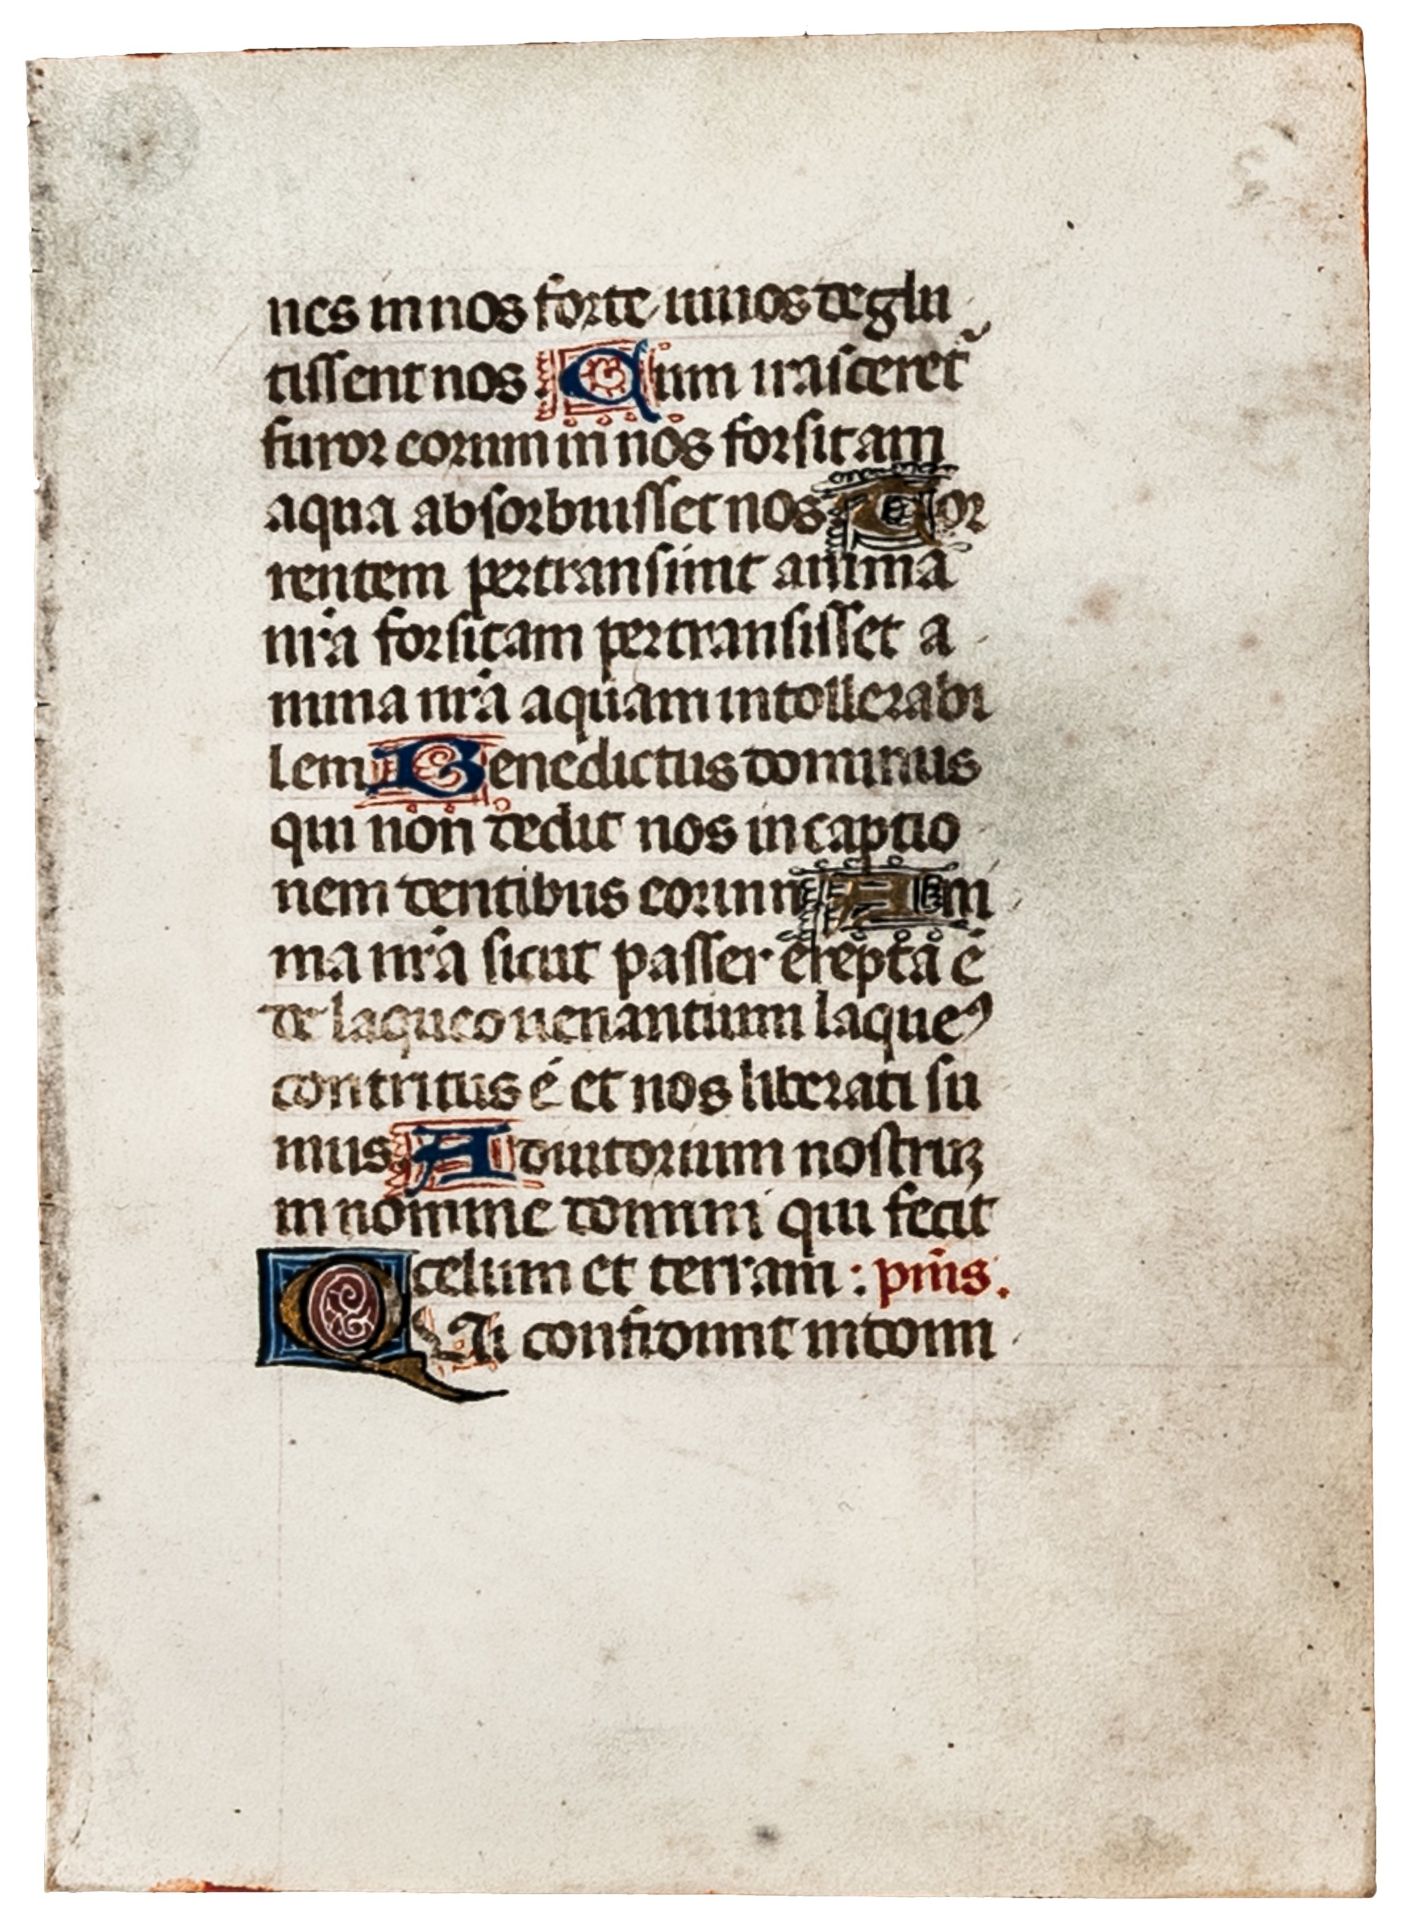 nes in nos forte uiuos deglu
tissent nos. Cum irasceret᷑
furor eorum in nos forsitam
aqua absorbuisset nos Tor
rentem pertransiuit anima
nr̃a forsitam pertransisset a
nima nr̃a aquam intollerabi
lem Benedictus dominus
qui non dedit nos in captio
nem dentibus eorum Ani
ma nr̃a sicut passer erepta ē
de laqueo uenantium laqueꝰ
contritus ē et nos liberati su
mus Adiutorium nostruꝫ
in nomine domini qui fecit
celum et terram : pm̃s.
QUi confidunt in domi